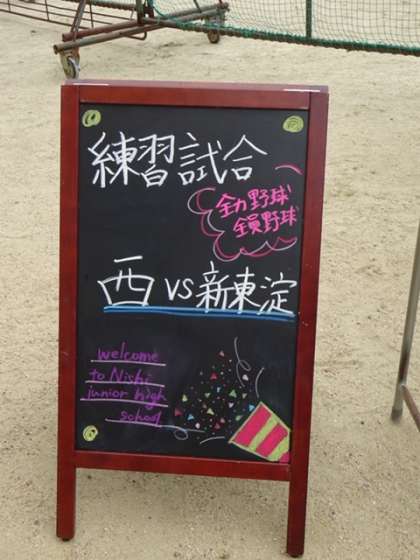 練習試合
全力野球
全員野球
西 vs 新東淀
welcome
to Nishi
junior high
school